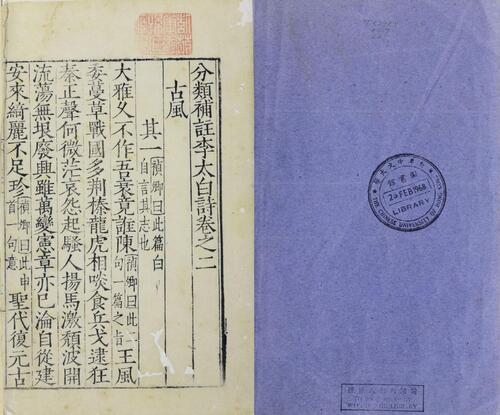 分類補註李太白詩卷之二
古風
其一禎卿曰此篇白自言其志也
大雅久不作吾衰竟誰陳禎卿曰此二句一篇之旨王風
委蔓草戰國多荆榛龍虎相啖食兵戈逮狂
秦正聲何微茫哀怨起騷人揚馬激頹波開
流蕩無垠廢興雖萬變憲章亦已淪自從建
安來綺麗不足珍禎卿曰此申首一句意聖代復元古
圖書館
FEB 1968
LIBRARY
THE CHINESE UNIVERSITY OF HONG KONG